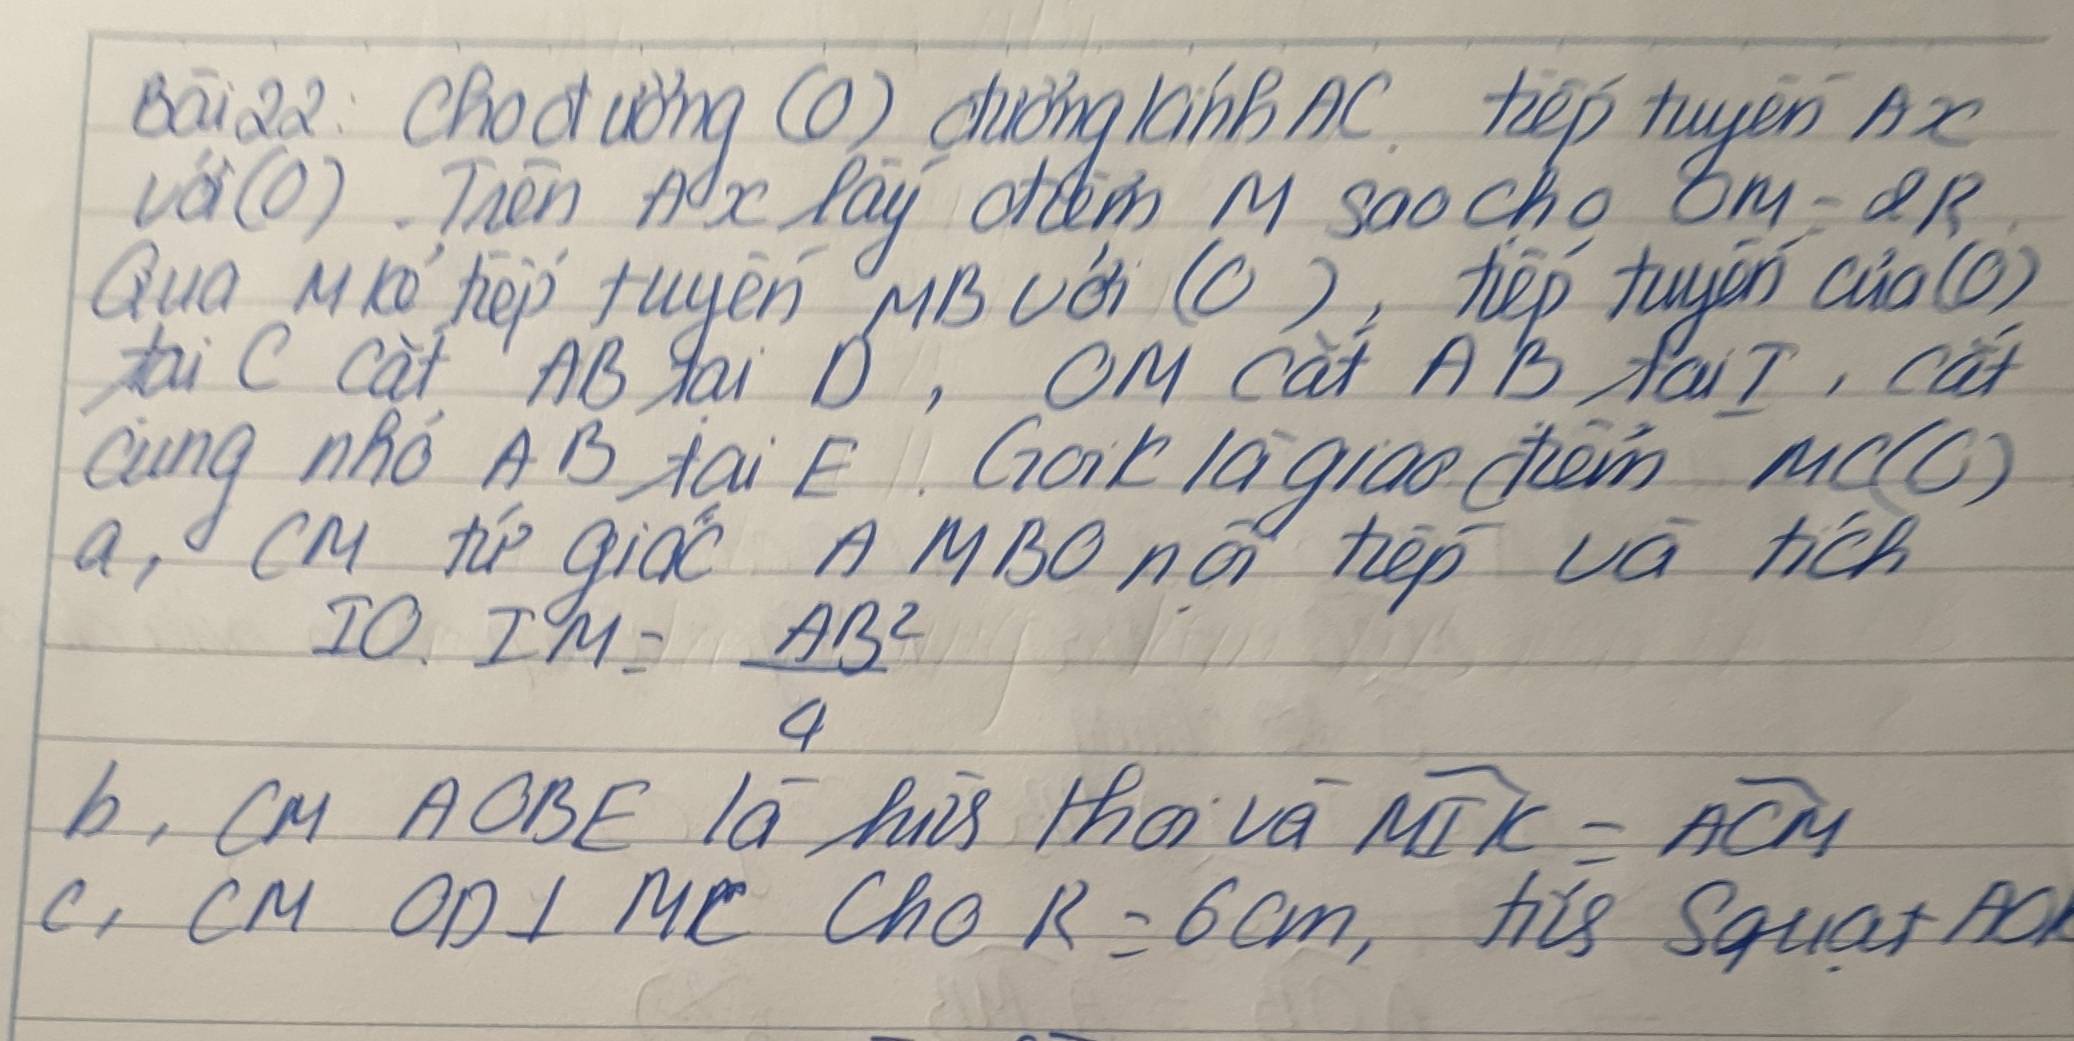 Bài 22: Cho đường (O) đường kính AC. tiếp tuyến Ax
với (O). Trên Ax lấy điểm M sao cho OM = 2R.
Qua M kẻ tiếp tuyến MB với (O), tiếp tuyến của (O)
tại C cắt AB tại D, OM cắt AB tại I, cắt
cung nhỏ AB tại E. Gọi K là giao điểm MC(O)
a, CM tứ giác AMBO nội tiếp và tích
IO. IM = AB²/4
b, CM AOBE là hình thoi và MIK = ACM
c, CM OD⊥MC Cho R = 6cm, tính Squạt